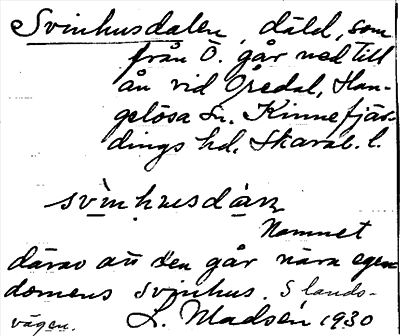 Svinhusdalen, däld, som
från Ö. går ned till
ån vid Öredal, Han-
gelösa sn. Kinnefjär-
dings hd. Skarab. l.
svinhusdàrn
Namnet
därav att den går nära egen
domens svinhus. S lands-
vägen. L. Madsén 1930